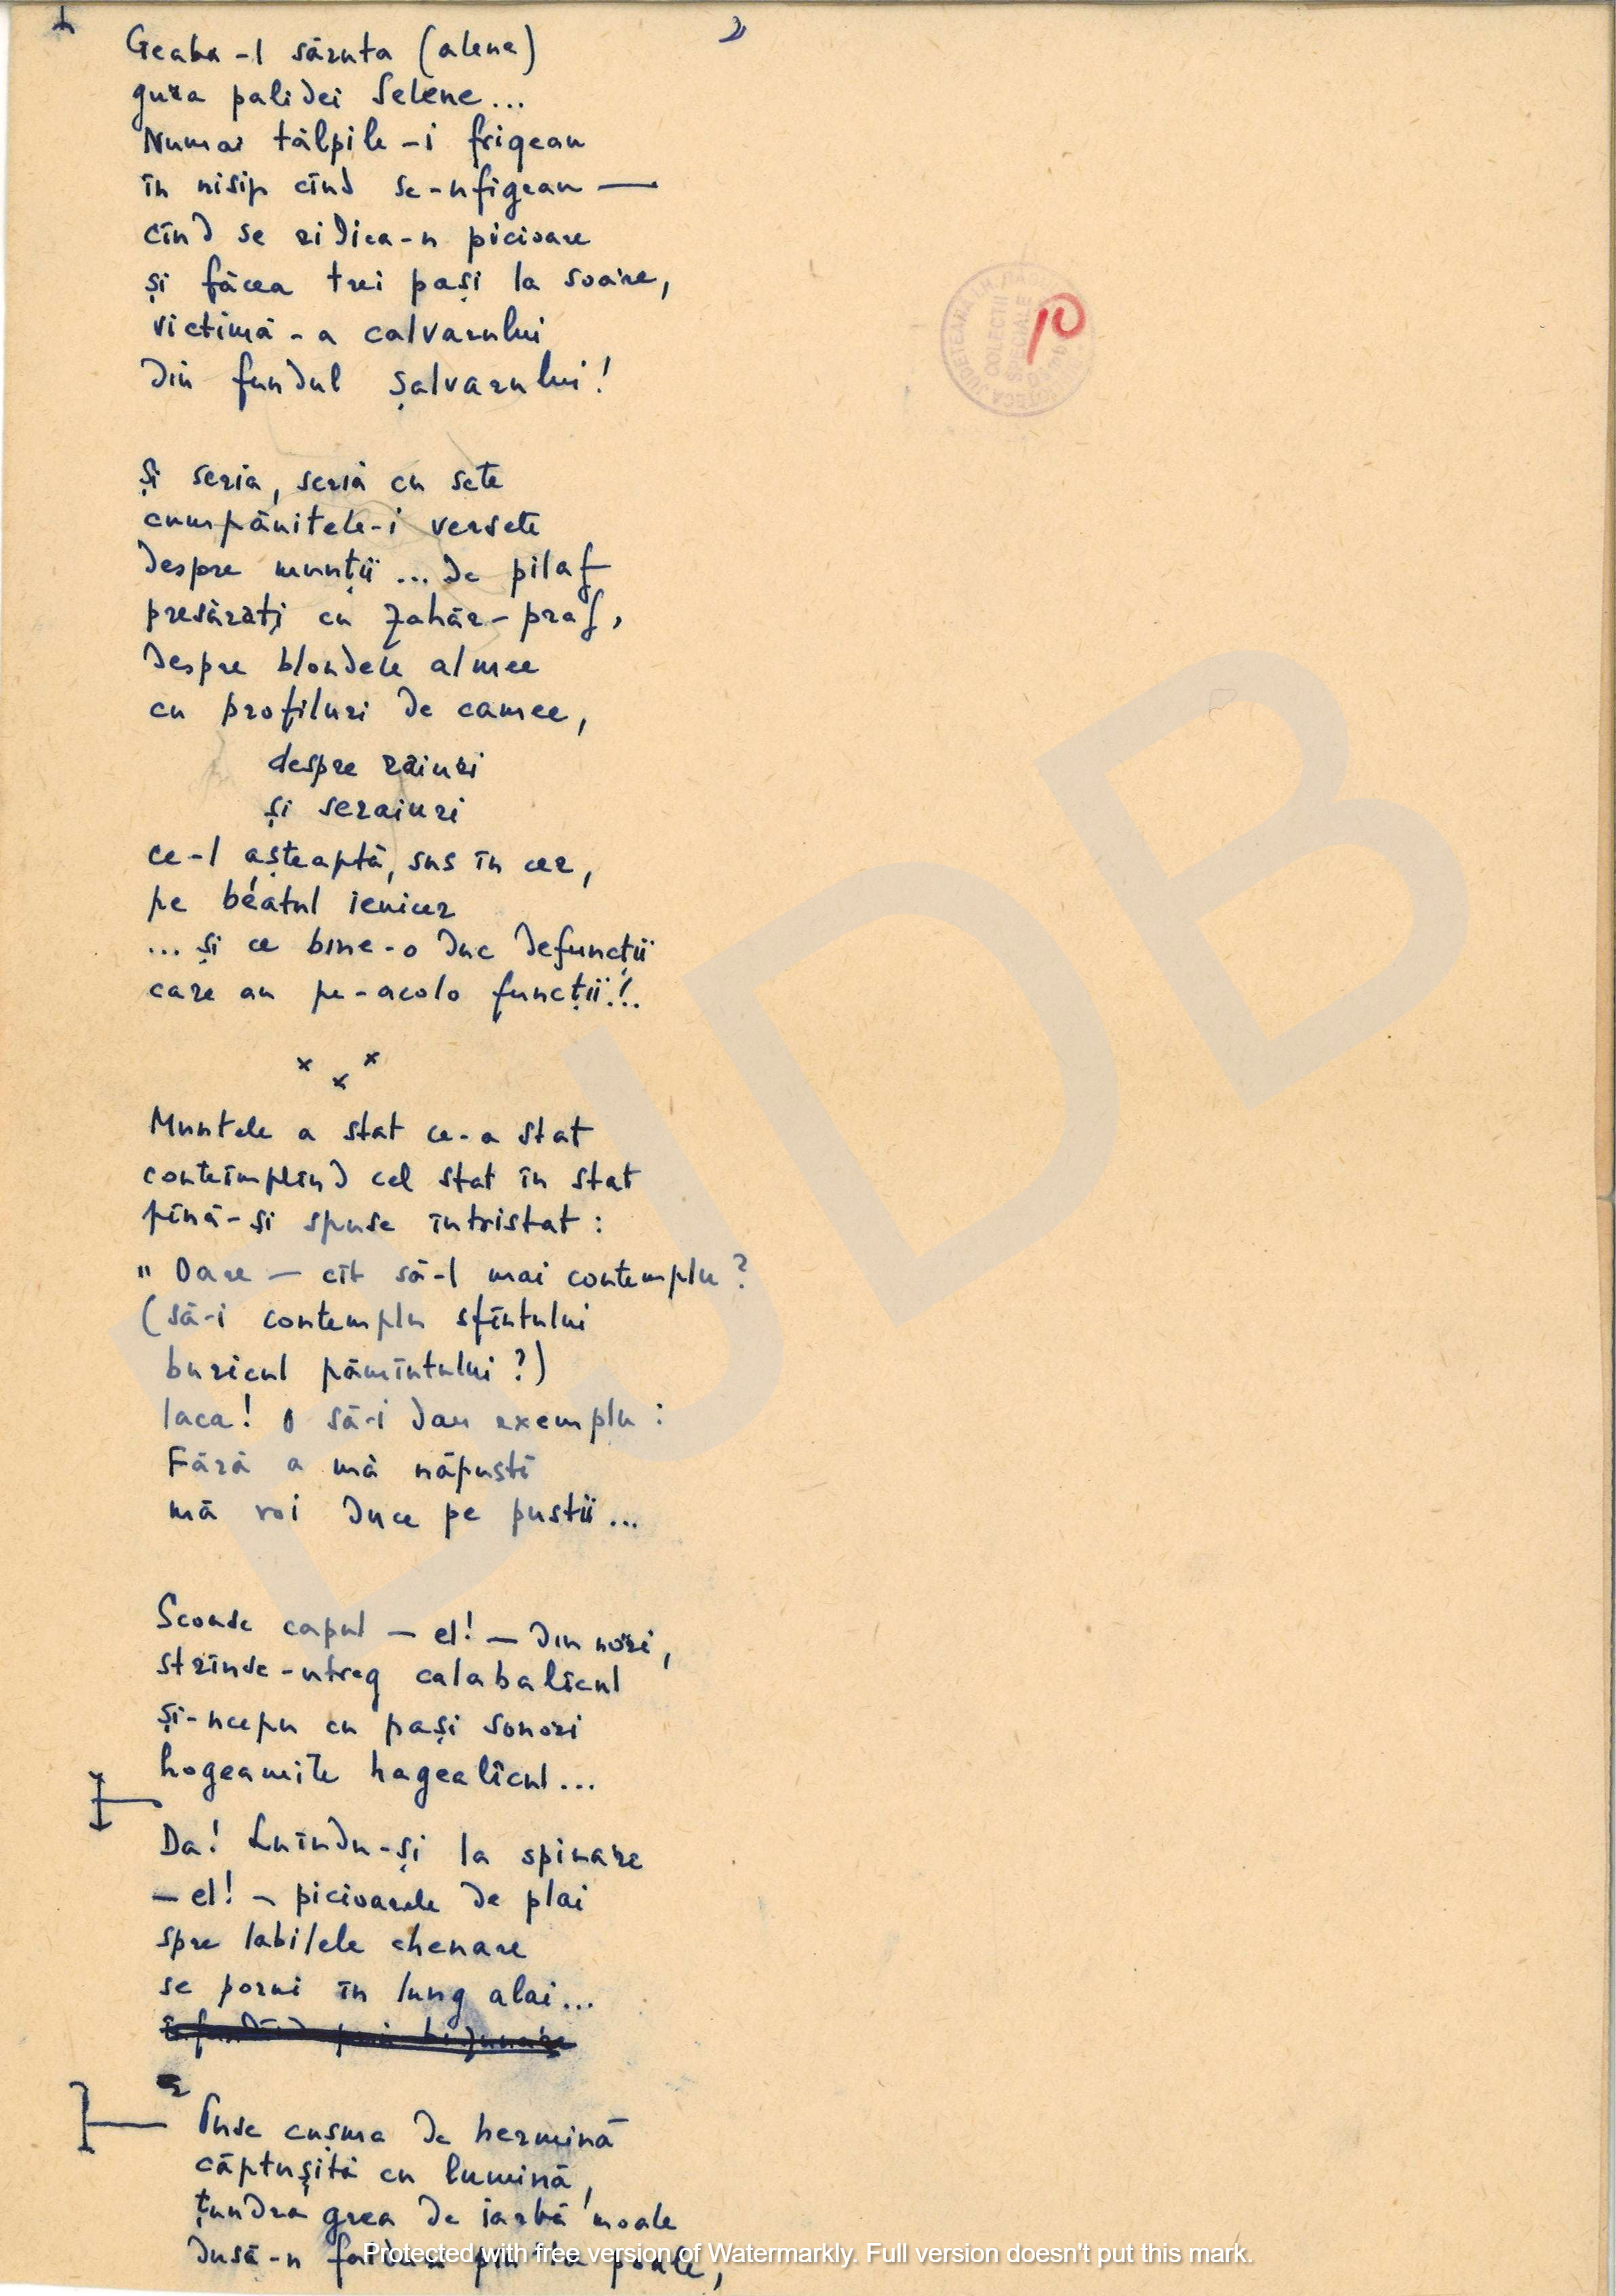 2
Geaba-l săruta (alene)
gura palidei Selene...
Numai tălpile-i frigeau
în nisip cînd se-nfigeau —
cînd se ridica-n picioare
și făcea trei pași la soare,
victimă-a calvarului
din fundul șalvarului!
Și scria, scria cu sete
cumpănitele-i versete
despre munții... de pilaf
presărați cu zahăr-praf,
despre blondele almee
cu profiluri de camee,
despre raiuri
și seraiuri
ce-l așteaptă, sus în cer,
pe beatul ienicer
... și ce bine-o duc defuncții
care au pe-acolo funcții!..
x x x
Muntele a stat ce-a stat
contemplînd cel stat în stat
pînă-și spuse întristat:
"Oare — cît să-l mai contemplu?
(să-i contemplu sfîntului
buricul pămîntului?)
Iaca! O să-i dau exemplu:
Fără a mă năpusti
mă voi duce pe pustii...
Scoase capul — el! — din nori,
strînse-ntreg calabalîcul
și-ncepu cu pași sonori
hogeamite hagealîcul...
Da! Luîndu-și la spinare
— el! — picioarele de plai
spre labilele chenare
se porni în lung alai...
Puse cușma de hermină
căptușită cu lumină,
țundra grea de iarbă moale
dusă-n falduri pîn' la poale,
BJDB
COLECȚII SPECIALE
Protected with free version of Watermarkly. Full version doesn't put this mark.